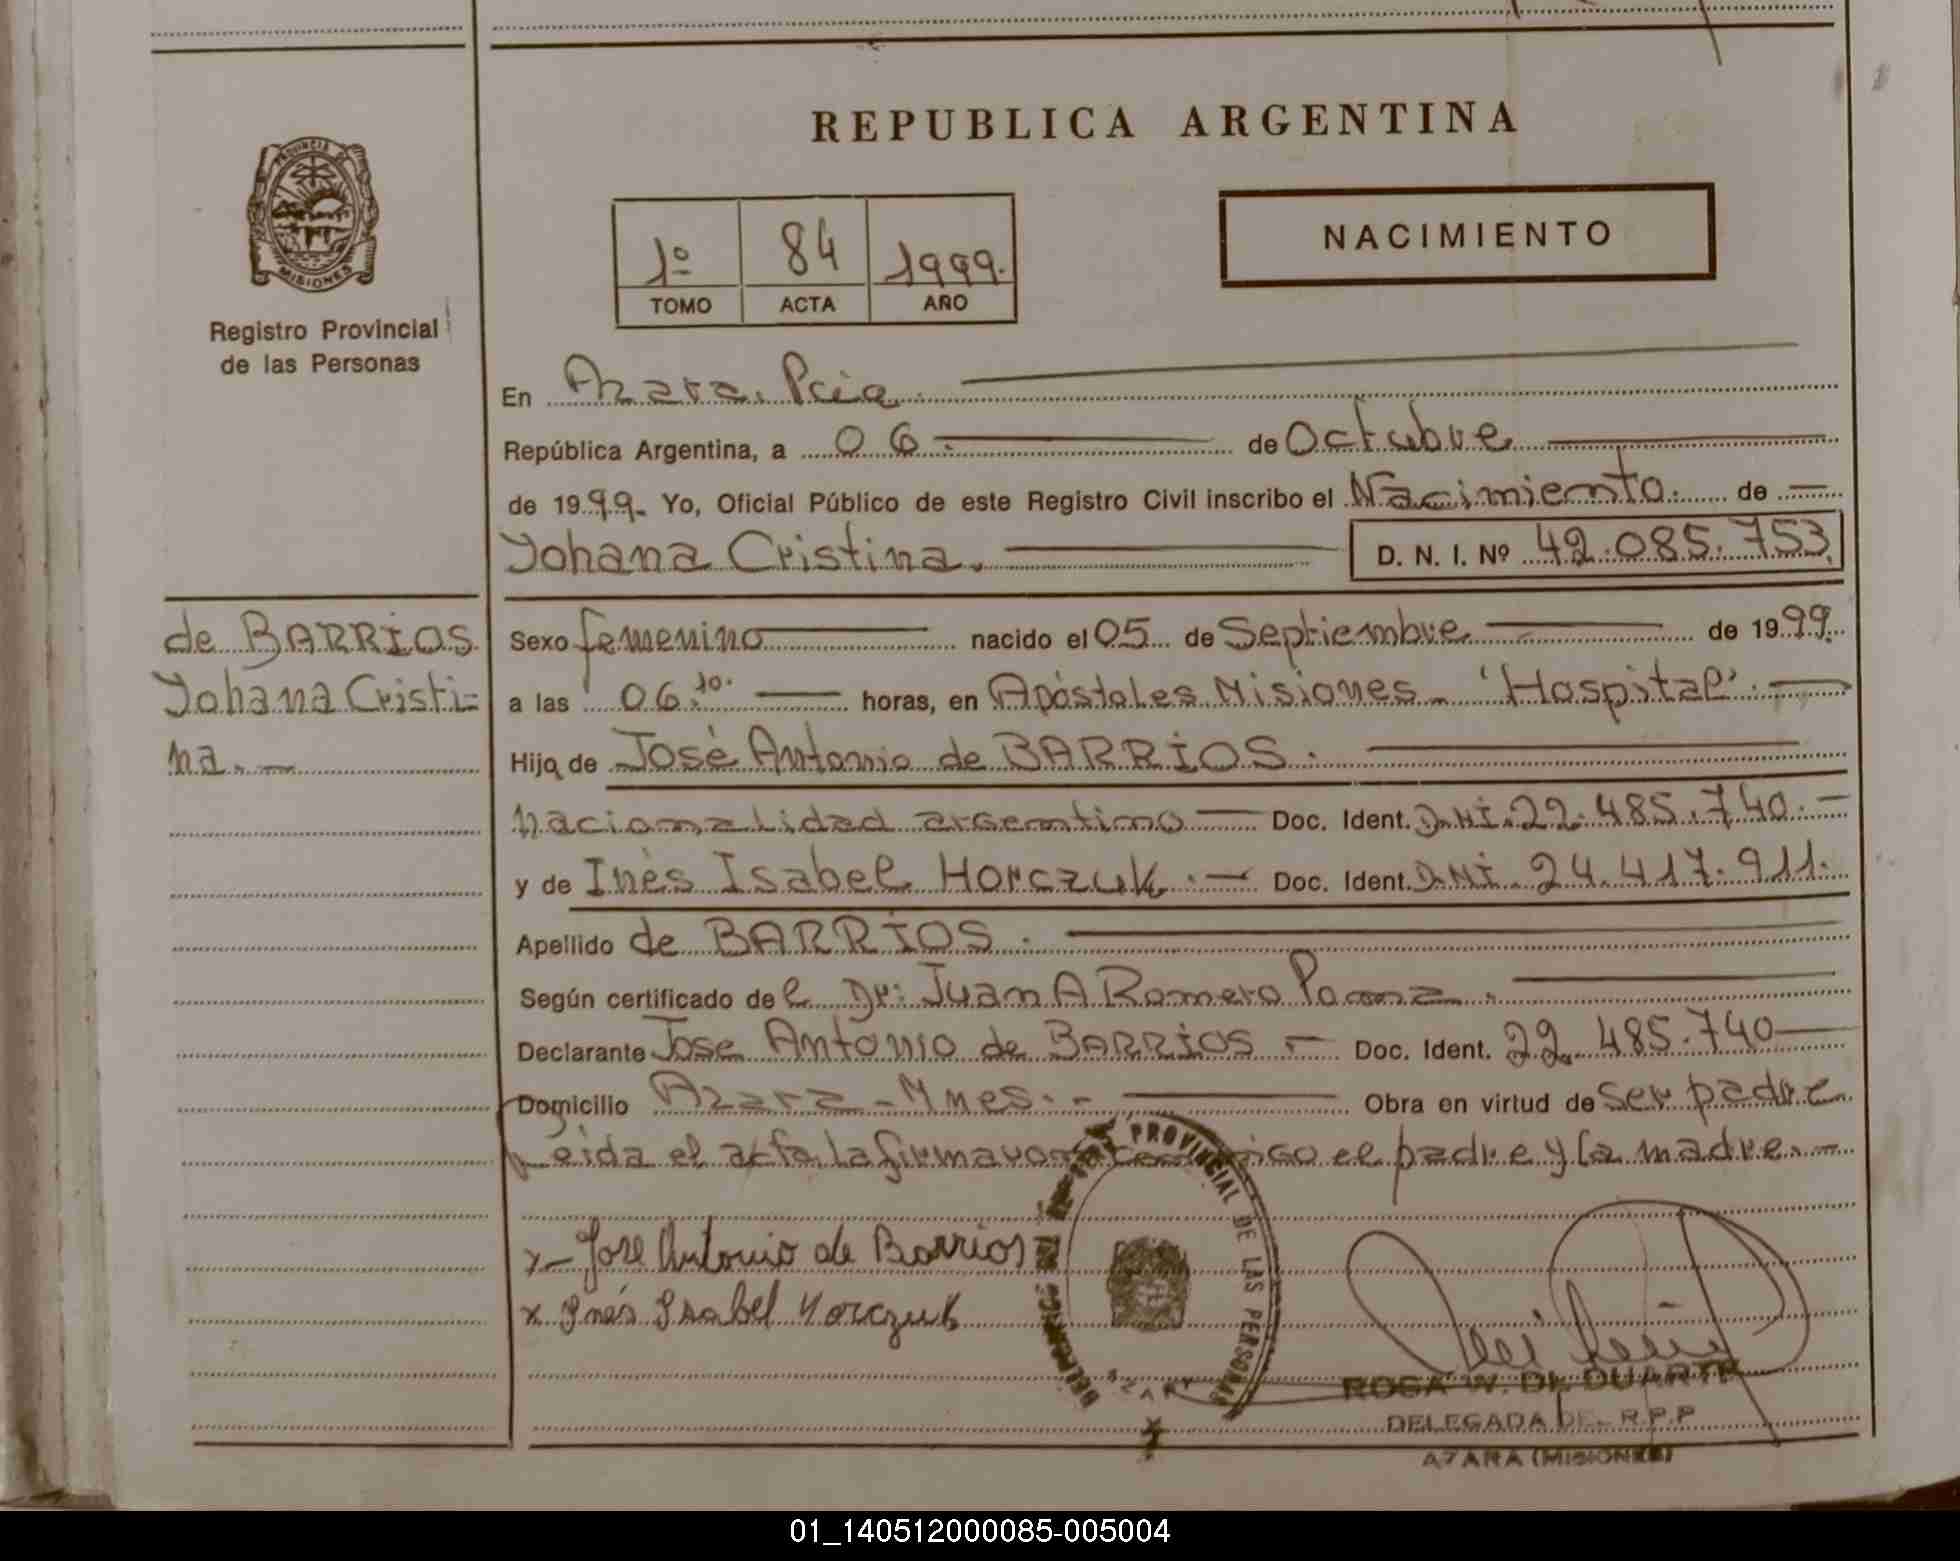 REPUBLICA ARGENTINA
PROVINCIA DE
MISIONES
Registro Provincial
de las Personas
1º 84 1999.
TOMO ACTA AÑO
NACIMIENTO
En Azara. Pcia.
República Argentina, a 06. de Octubre
de 1999. Yo, Oficial Público de este Registro Civil inscribo el Nacimiento. de —
Yohana Cristina. D. N. I. Nº 42.085.753.
de BARRIOS
Yohana Cristi=
na. —
Sexo femenino nacido el 05 de Septiembre de 1999.
a las 06:10. horas, en Apóstoles Misiones - "Hospital".
Hija de José Antonio de BARRIOS.
nacionalidad argentino — Doc. Ident. D.N.I. 22.485.740. —
y de Inés Isabel Horczuk. — Doc. Ident. D.N.I. 24.417.911.
Apellido de BARRIOS.
Según certificado del Dr: Juan A Romero
Declarante Jose Antonio de BARRIOS — Doc. Ident. 22.485.740 —
Domicilio Azara - Mnes. - Obra en virtud de ser padre
Leida el acta la firma el padre y la madre. —
x- Jose Antonio de Barrios
x Inés Isabel Horczuk
PROVINCIAL DE LAS PERSONAS
AZARA
ROSA W. DE DUARTE
DELEGADA DEL R.P.P
AZARA (MISIONES)
01_140512000085-005004